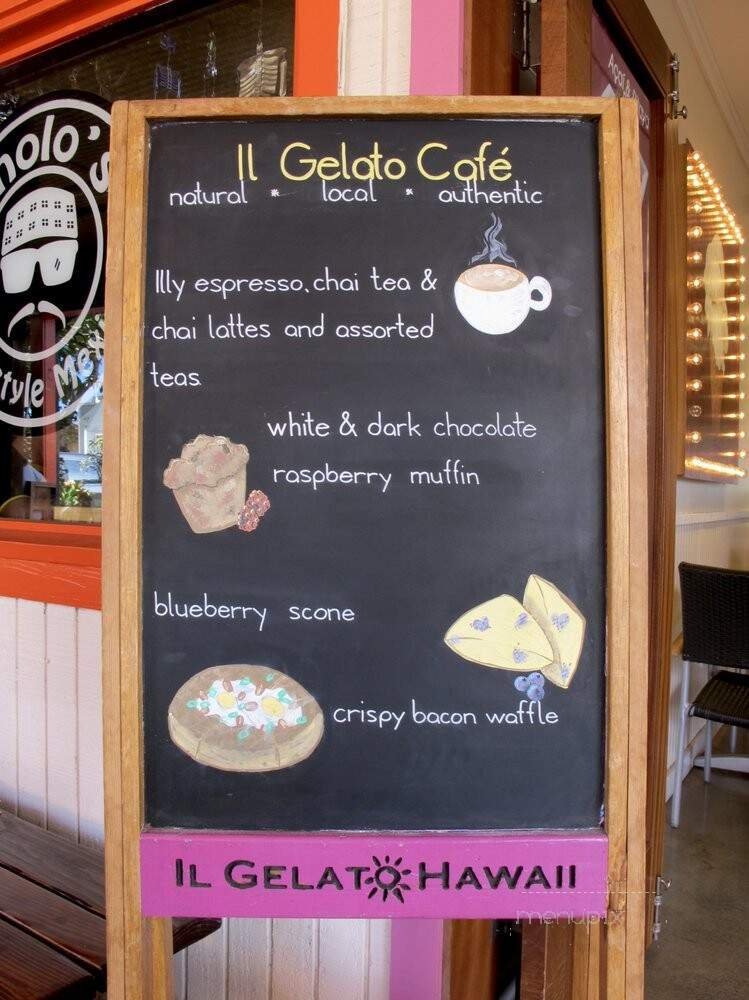 Il Gelato Café
natural * local * authentic
Illy espresso, chai tea &
chai lattes and assorted
teas
white & dark chocolate
raspberry muffin
blueberry scone
crispy bacon waffle
IL GELATO HAWAII
menupix
nolo's
Style Mex